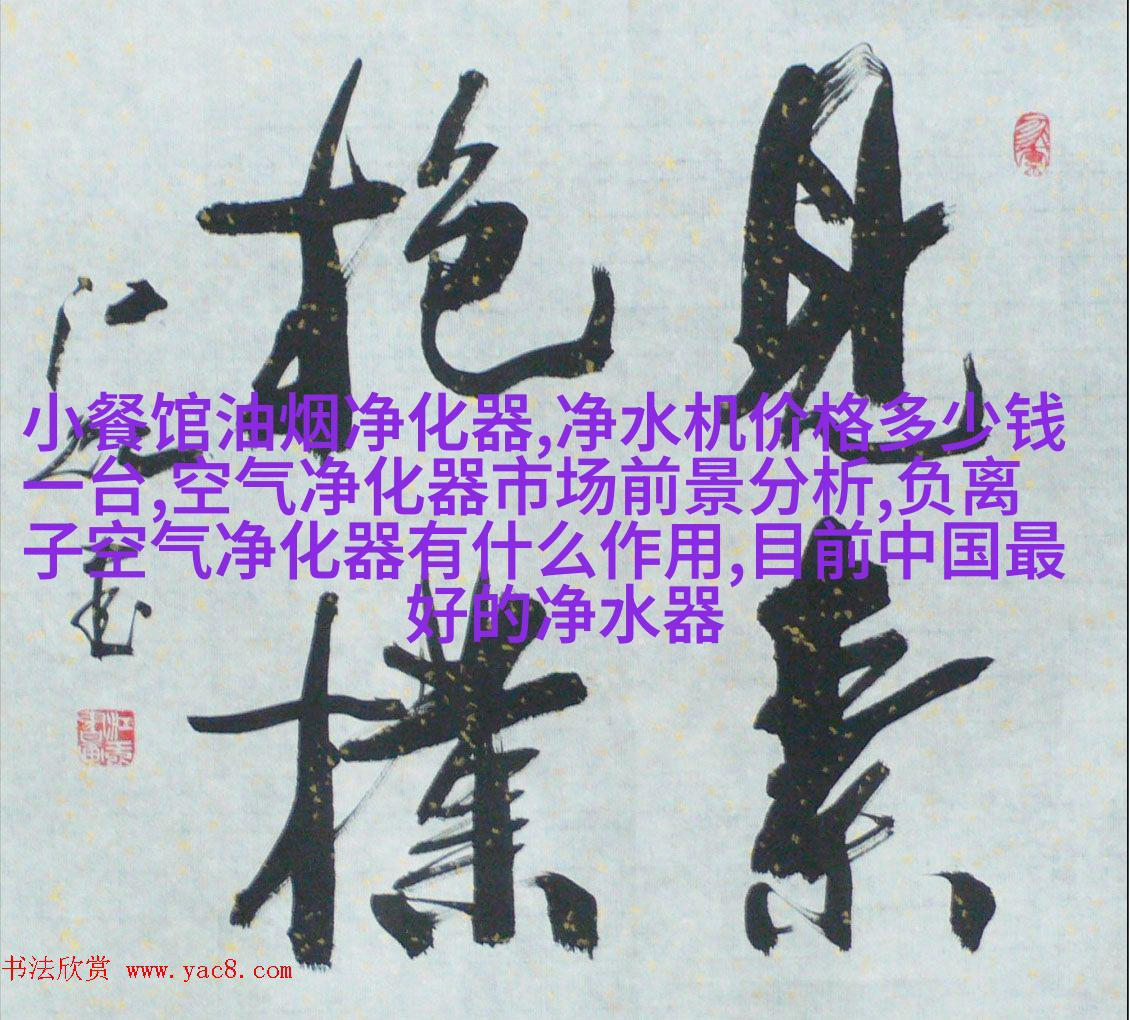 見素
抱樸
小餐馆油烟净化器,净水机价格多少钱
一台,空气净化器市场前景分析,负离
子空气净化器有什么作用,目前中国最
好的净水器
书法欣赏 www.yac8.com